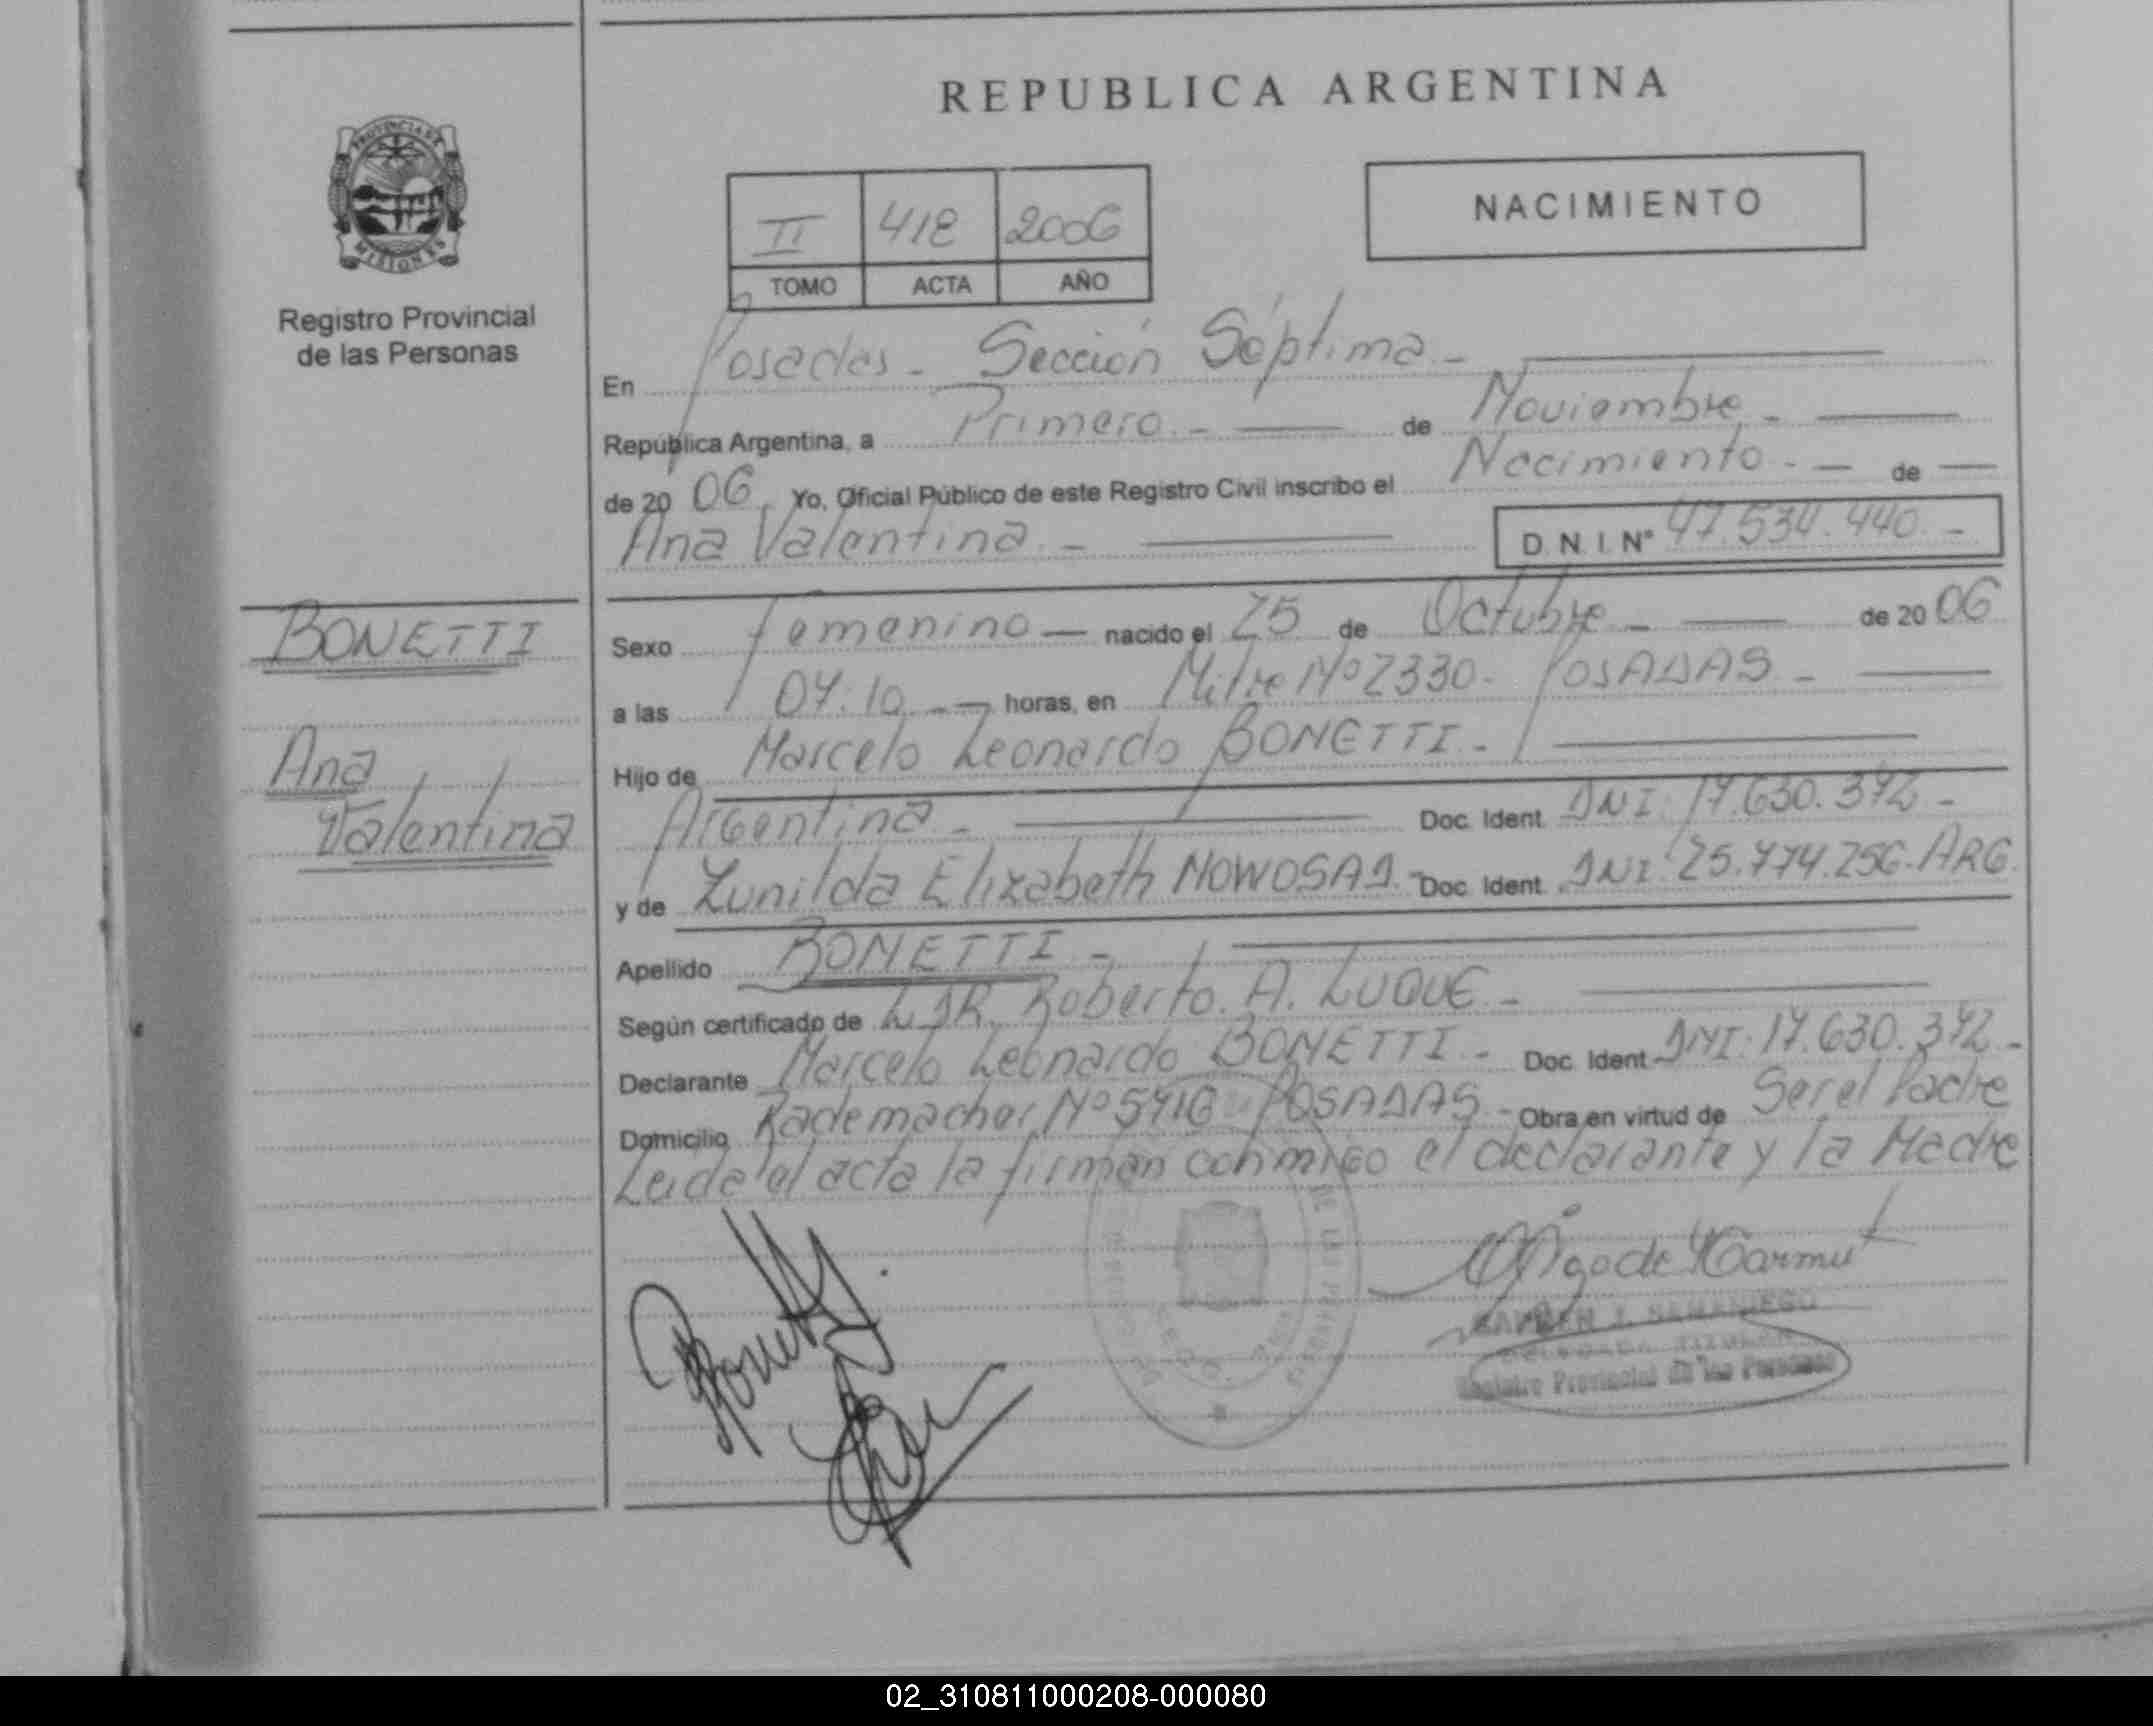 REPUBLICA ARGENTINA
PROVINCIA DE
MISIONES
Registro Provincial
de las Personas
NACIMIENTO
II 418 2006
TOMO ACTA AÑO
En Posadas - Sección Séptima -
República Argentina, a Primero - de Noviembre -
de 20 06, Yo, Oficial Público de este Registro Civil inscribo el Nacimiento - de
Ana Valentina - D.N.I. Nº 47.534.440.-
BONETTI
Ana
Valentina
Sexo Femenino nacido el 25 de Octubre - de 20 06
a las 07:10 - horas, en Mitre Nº 2330 - POSADAS -
Hijo de Marcelo Leonardo BONETTI -
Argentina - Doc. Ident. DNI. 17.630.372 -
y de Zunilda Elizabeth NOWOSAD - Doc. Ident. DNI. 25.774.256-ARG.
Apellido BONETTI -
Según certificado de L DR. Roberto. A. LUQUE -
Declarante Marcelo Leonardo BONETTI - Doc. Ident. DNI. 17.630.372 -
Domicilio Rademacher Nº 5416 POSADAS - Obra en virtud de Ser el Padre
Leida el acta la firman conmigo el declarante y la Madre
Bonetti
DE LAS PERSONAS
Registro Provincial de las Personas
02_310811000208-000080